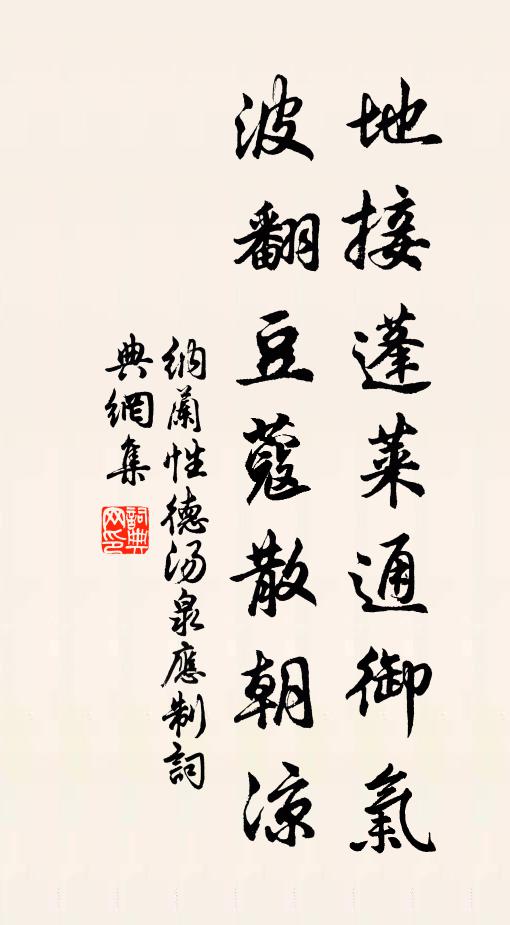 地接蓬萊通御氣
波翻豆蔻散朝涼
纳蘭性德汤泉應制詞
典網集
詞典
网印